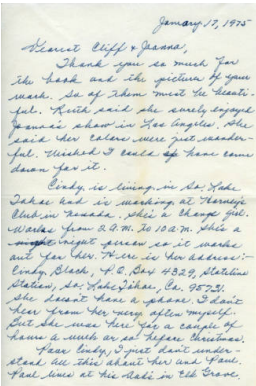 January 17, 1975
Dearest Cliff & Joanna,
Thank you so much for
the book and the picture of your
work. So of them must be beauti-
ful. Ruth said she surely enjoyed
Joanna's show in Los Angeles. She
said her colors were just wonder-
ful. Wished I could have come
down for it.
Cindy, is living in So. Lake
Tahoe and is working at Harvey's
Club in Nevada. She's a change girl.
Works from 2 A.M. to 10 A.M. She's a
night person so it works
out for her. Here is her address:-
Cindy Black, P.O. Box 4329, Stateline
Station, So. Lake Tahoe, Ca, 95721.
She doesn't have a phone. I don't
hear from her very often myself.
But she was here for a couple of
hours a week or so before Christmas.
Poor Cindy, I just don't under-
stand all this about her and Paul.
Paul lives at his dads in Elk Grove